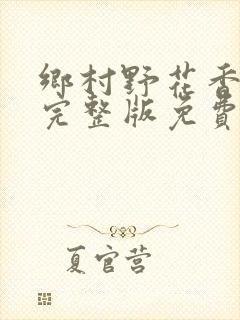 鄉村野花香
完整版免費
夏官营